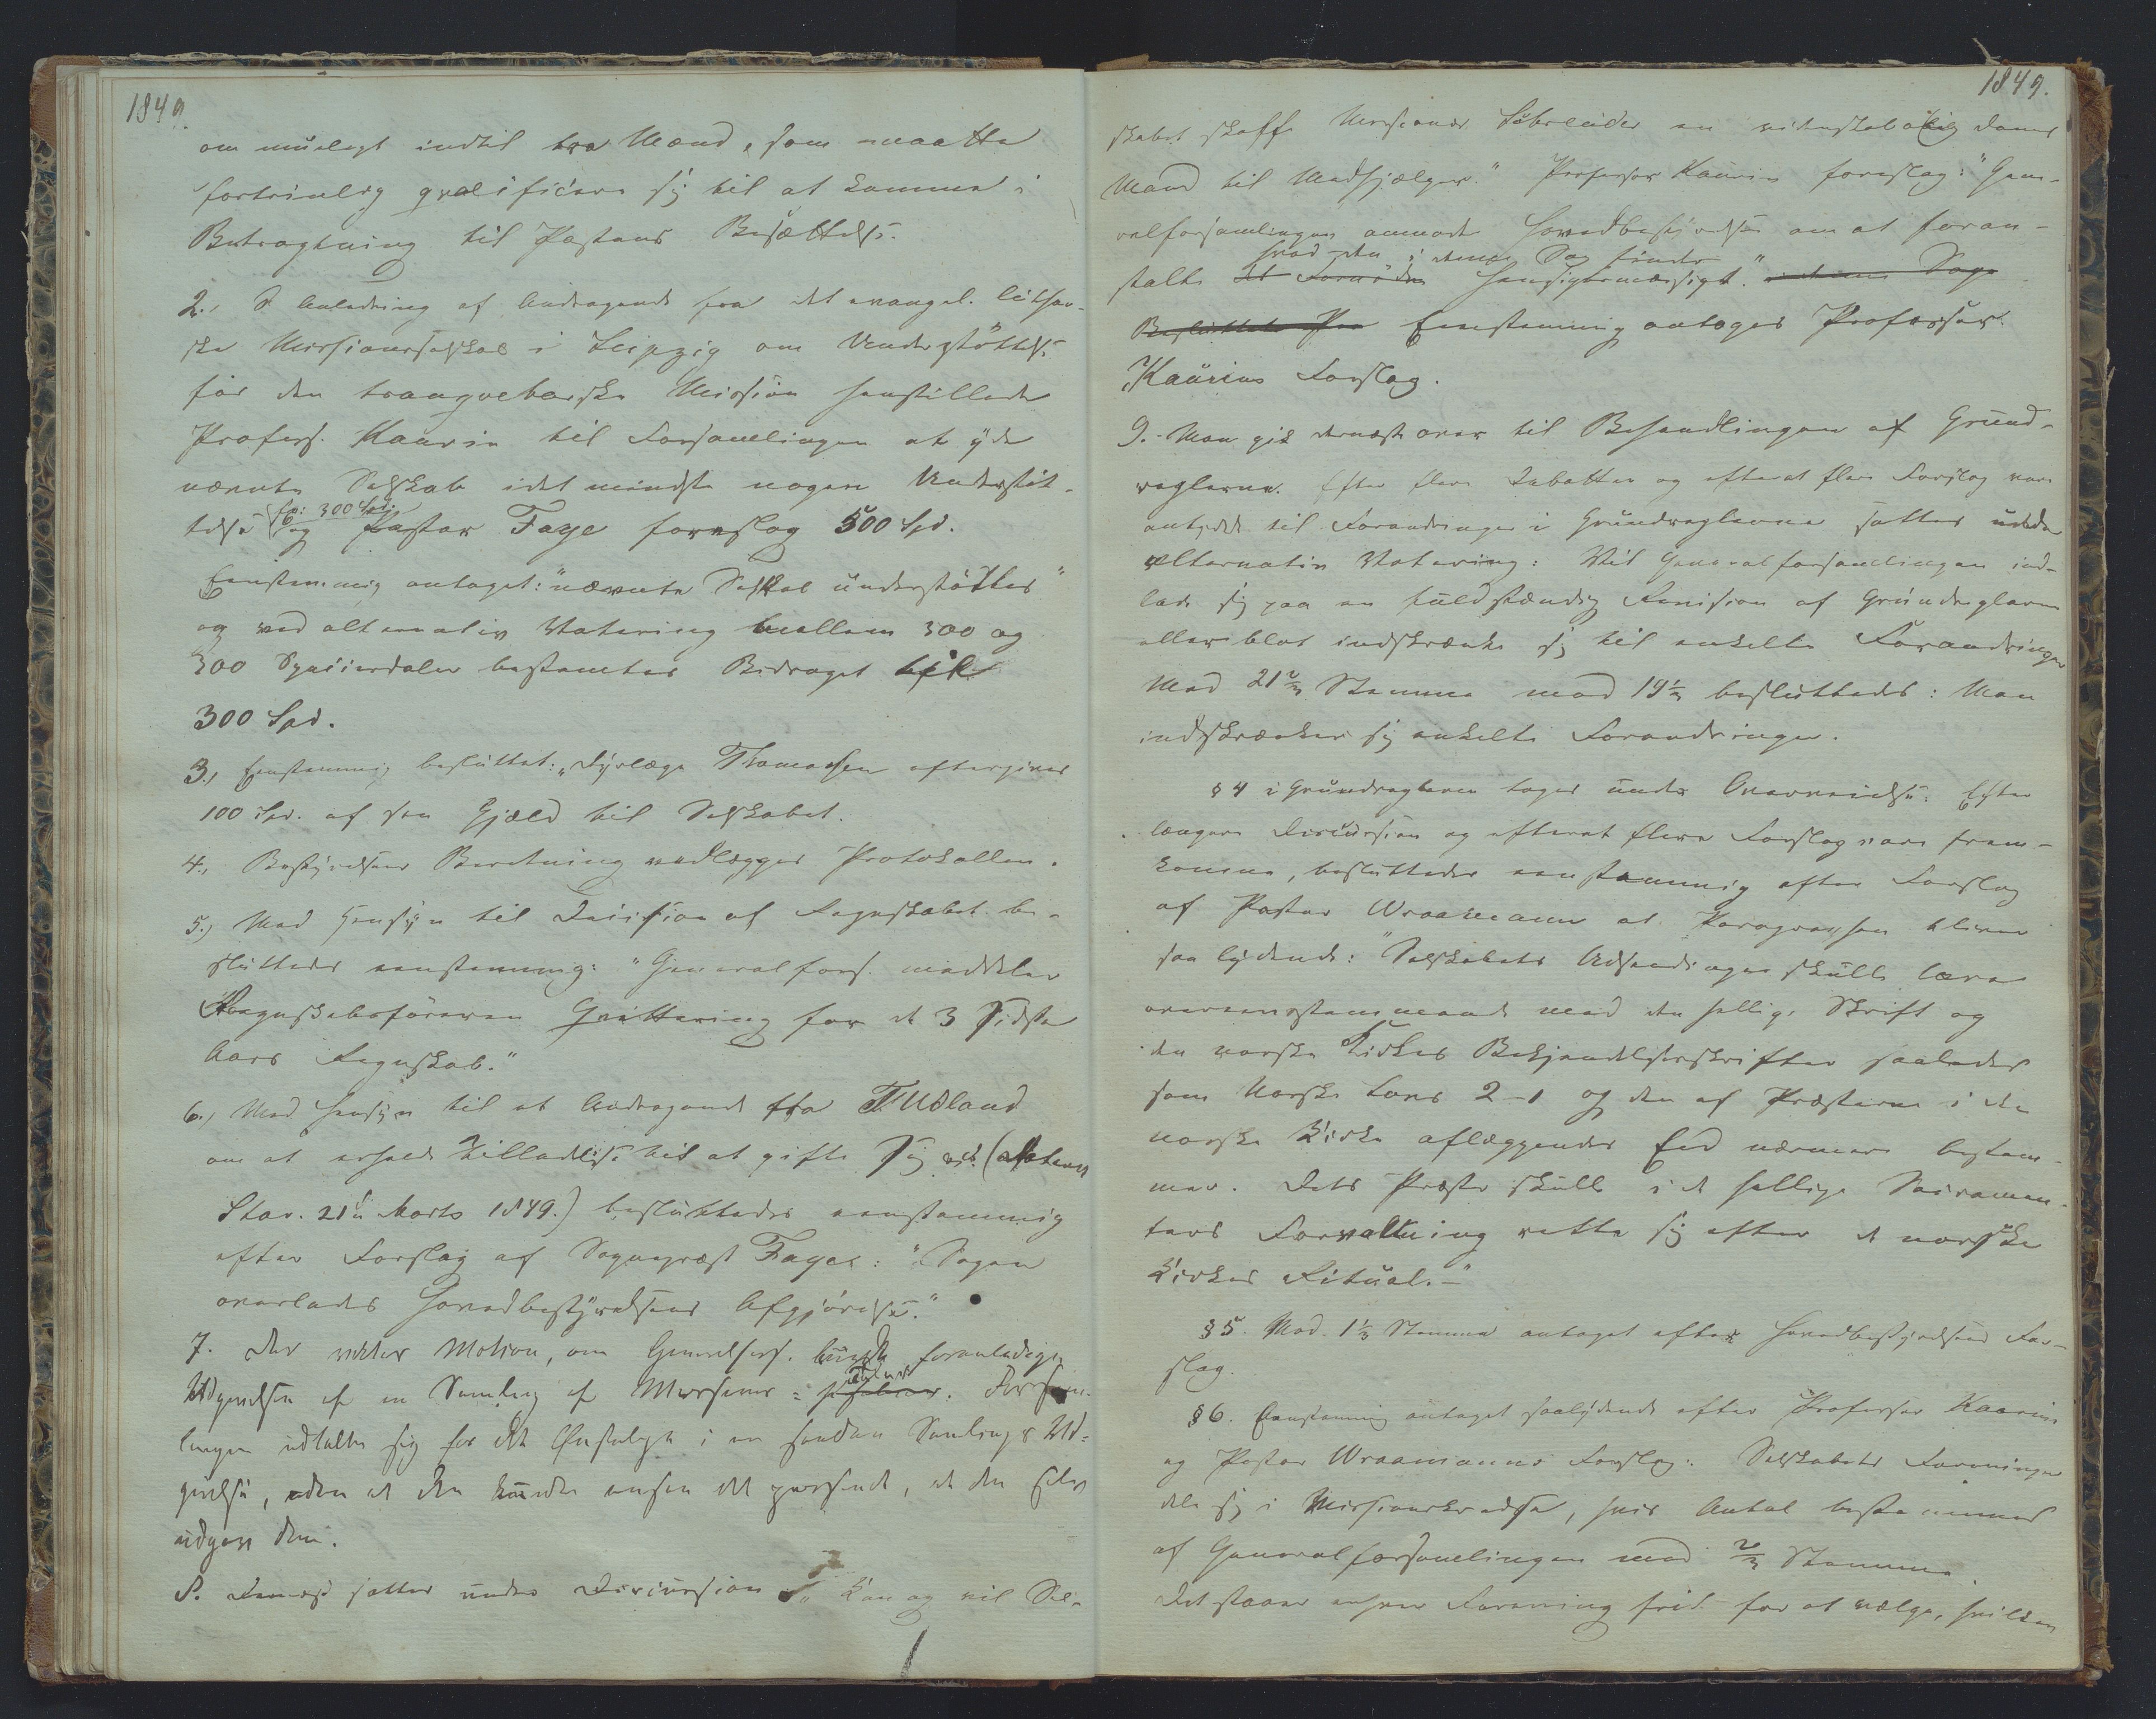 1849.
om muligt indtil tra Mænd, som maatte
fortrinlig qvalificere sig til at komme i
Betragtning til Postens Besættelse.
2., I Anledning af Andragende fra det evangel. luther-
ske Missionsselskab i Leipzig om Understøttelse
for den tranqvebarske Mission henstillede
Profess. Kaurin til Forsamlingen at yde
nævnte Selskab idetmindste nogen Understøt-
telse (fp: 300 Spd.) og Pastor Faye foreslog 500 Spd.
Eenstemmig antaget: "nævnte Selskab understøttes"
og ved alternativ Votering mellem 500 og
300 Speciesdaler bestemtes Bidraget til
300 Spd.
3., Eenstemmig besluttet: "Dyrlæge Thomassen eftergives
100 Spd. af sin Gjæld til Selskabet.
4., Bestyrelsens Beretning vedlægges Protokollen.
5.) Med Hensyn til Decision af Regnskabet be-
sluttedes eenstemmig: "Generalfors. meddeler
Regnskabsføreren Qvittering for de 3 sidste
Aars Regnskab."
6.) Med Hensyn til et Andragende fra T. Udland
om at erholde Tilladelse til at gifte sig
Stav. 21de Marts 1849.) besluttedes eenstemmig
efter Forslag af Sognepræst Faye: "Sagen
overlades Hovedbestyrelsens Afgjørelse."
7. Der vaktes Motion, om Generalfors. burde foranledige
Udgivelsen af en Samling af Missions=psalmer. Forsam-
lingen udtalte sig for det Ønskelige i en saadan Samlings Ud=
givelse, uden at den kunde ansee det passende, at den selv
udgav den.
8. Dernæst sattes under Discussion "Kan og vil Sel-
1849.
skabet skaffe Missionær Schreuder en videnskabelig dannet
Mand til Medhjælper." Professor Kaurin foreslog: "Gene-
ralforsamlingen anmoder Hovedbestyrelsen om at foran-
stalte det Fornødne hvad den i denne Sag finder hensigtsmæssigt." i denne Sag
Besluttet Eenstemmig antoges Professor
Kaurins Forslag.
9. Man gik dernæst over til Behandlingen af Grund-
reglerne. Efter flere Debatter og efterat flere Forslag vare
antydede til Forandringer i Grundreglerne sattes under
alternativ Votering: Vil Generalforsamlingen ind-
lade sig paa en fuldstændig Revision af Grundreglerne
eller blot indskrænke sig til enkelte Forandringer
Med 21 2/3 Stemme mod 19 1/3 besluttedes: Man
indskrænker sig enkelte Forandringer.
§ 4 i Grundreglerne toges under Overveielse. Efter
længere Discussion og efterat flere Forslag vare frem-
komne, besluttedes eenstemmig efter Forslag
af Pastor Wraamann at Paragraphen bliver
saalydende: "Selskabets Udsendinger skulle lære
overeensstemmende med den hellige Skrift og
den norske Kirkes Bekjendelsesskrifter saaledes
som Norske Lovs 2-1 og den af Præsterne i den
norske Kirke aflæggendes Eed nærmere bestem-
mer. Dets Præster skulle i de hellige Sacramen-
ters Forvaltning rette sig efter den norske
Kirkes Ritual."
§ 5. Mod. 1 1/3 Stemme antaget efter Hovedbestyrelsens For-
slag.
§ 6. Eenstemmig antaget saalydende efter Professor Kaurins
og Pastor Wraamanns Forslag: Selskabets Foreninger
dele sig i Missionskredse, hvis Antal bestemmes
af Generalforsamlingen med 2/3 Stemme.
Det staaer enhver Forening frit for at vælge, hvilken